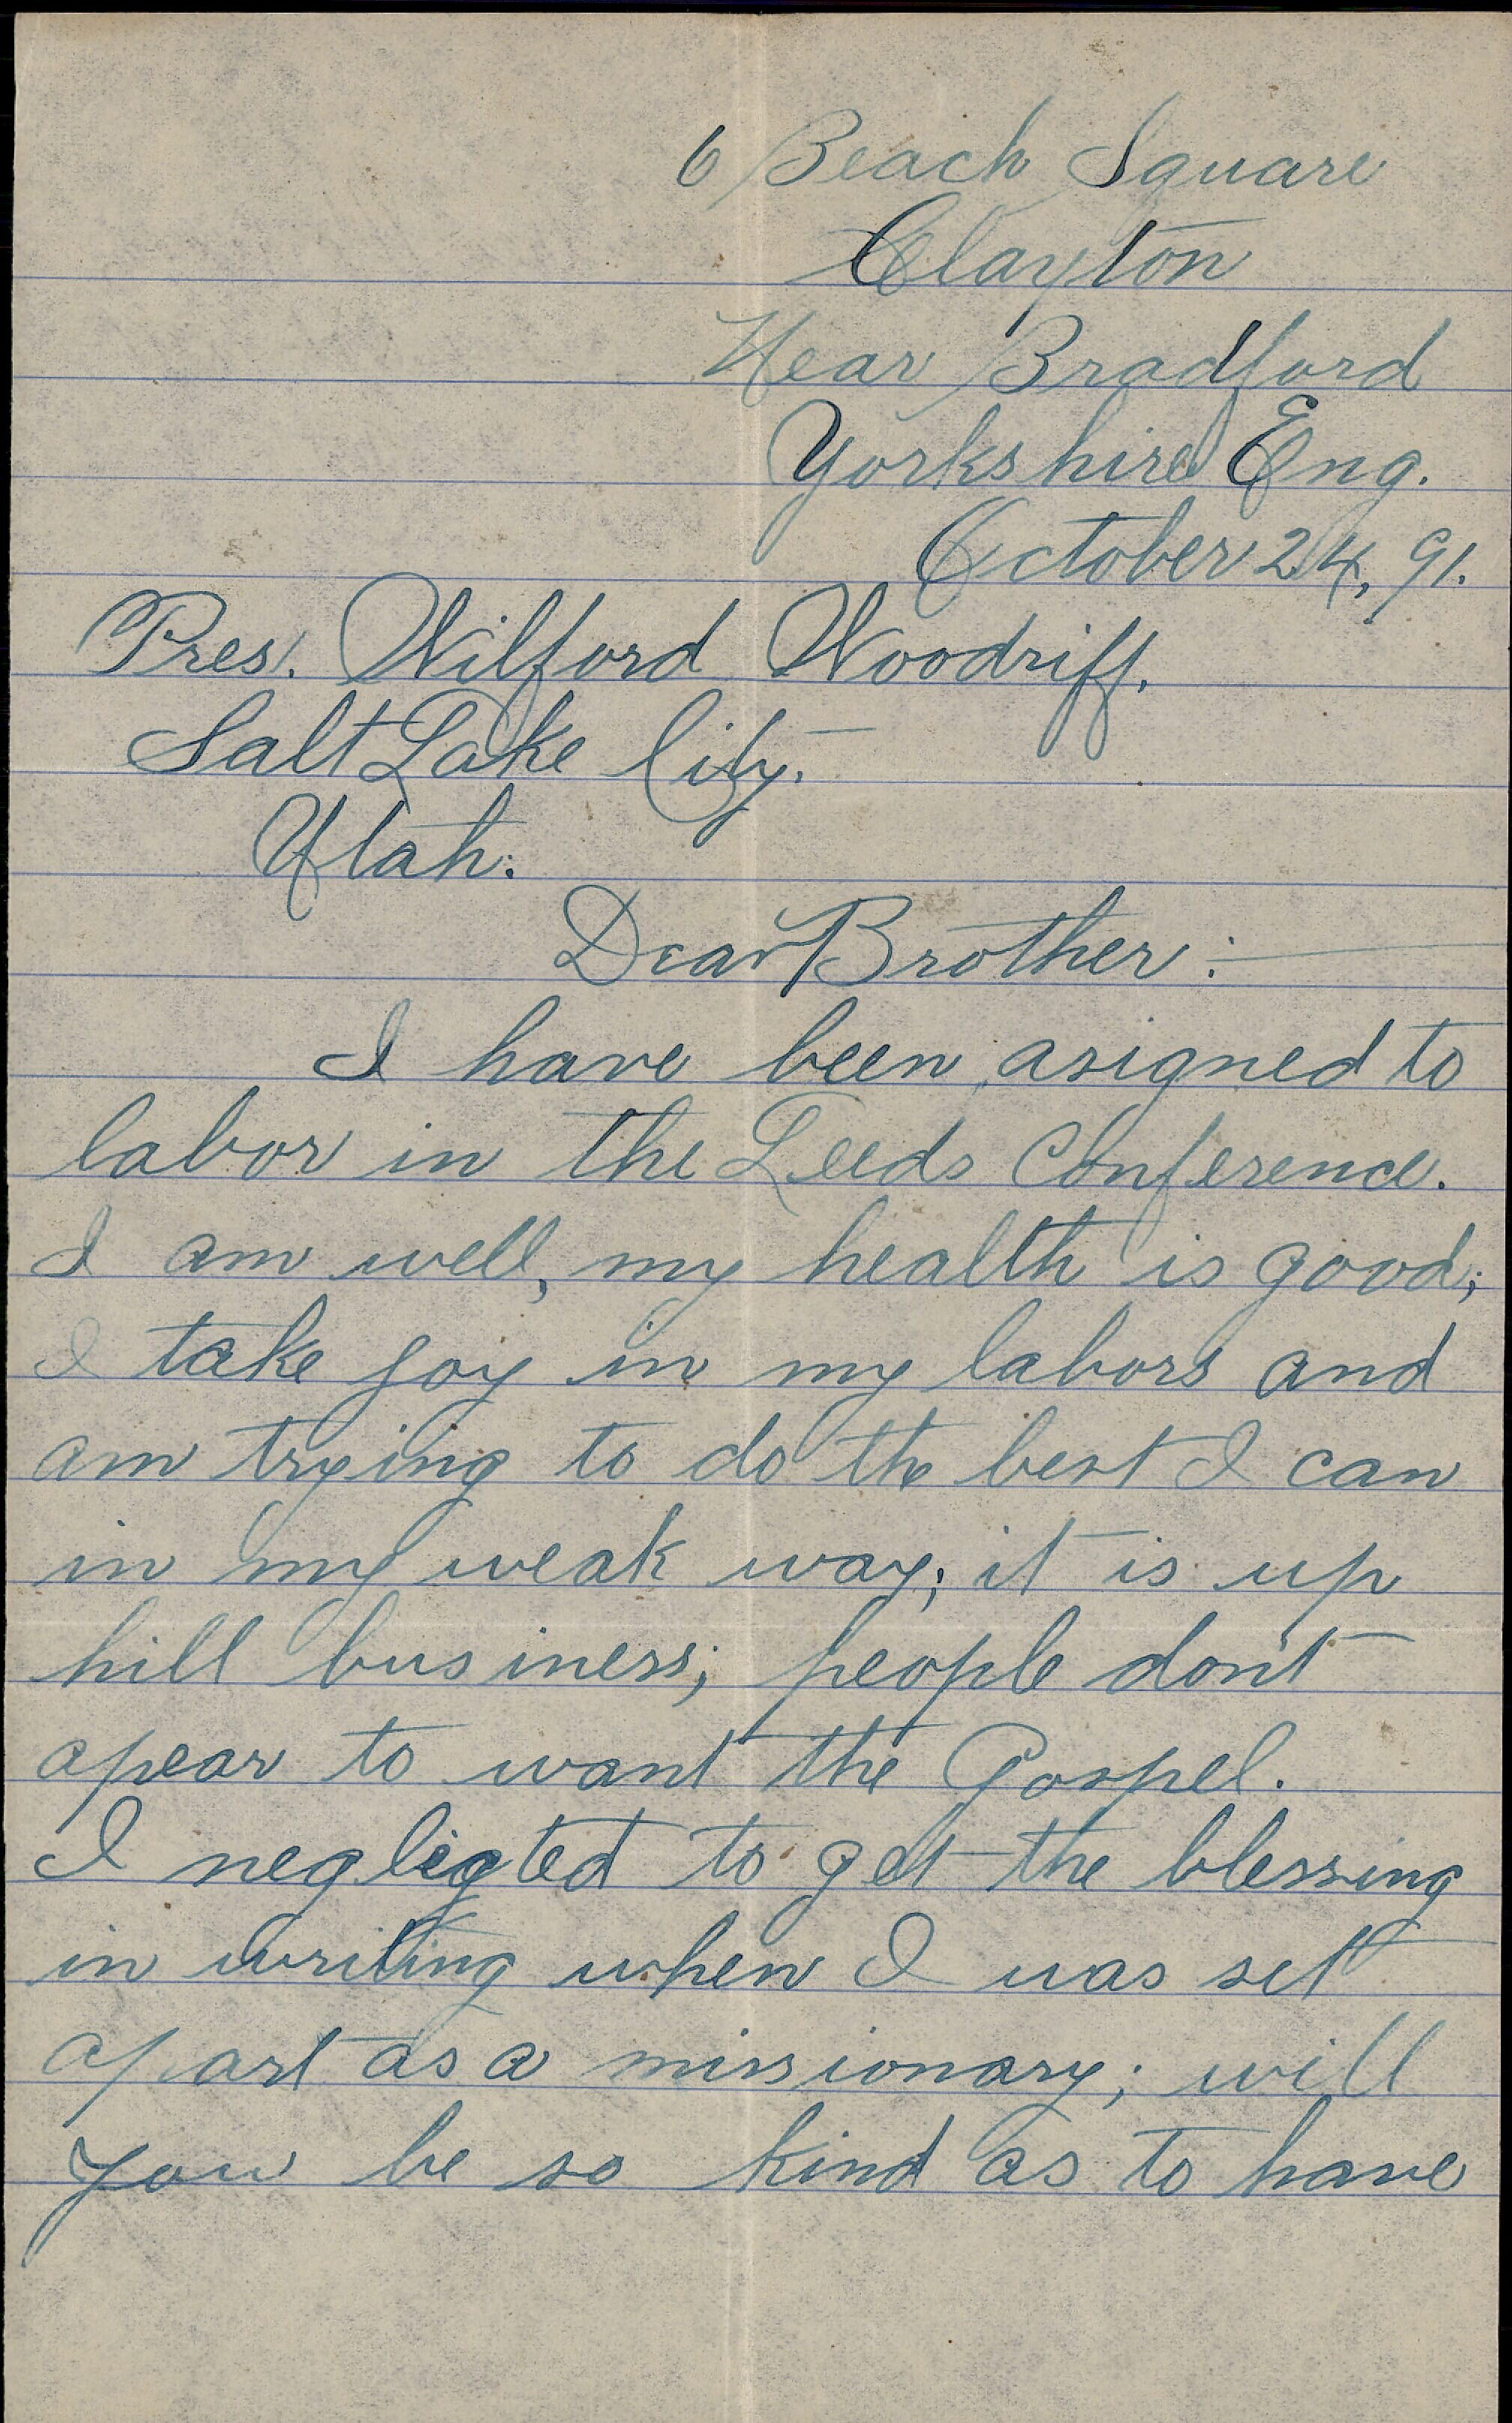 6 Beach Square
Clayton
Near Bradford
Yorkshire Eng.
October 24, 91.
Pres. Wilford Woodriff,
Salt Lake City.
Utah.
Dear Brother:
I have been asigned to
labor in the Leeds Conference.
I am well, my health is good;
I take joy in my labors and
am trying to do the best I can
in my weak way; it is up
hill business; people don't
apear to want the Gospel.
I negligted to get the blessing
in writing when I was set
apart as a missionary; will
you be so kind as to have